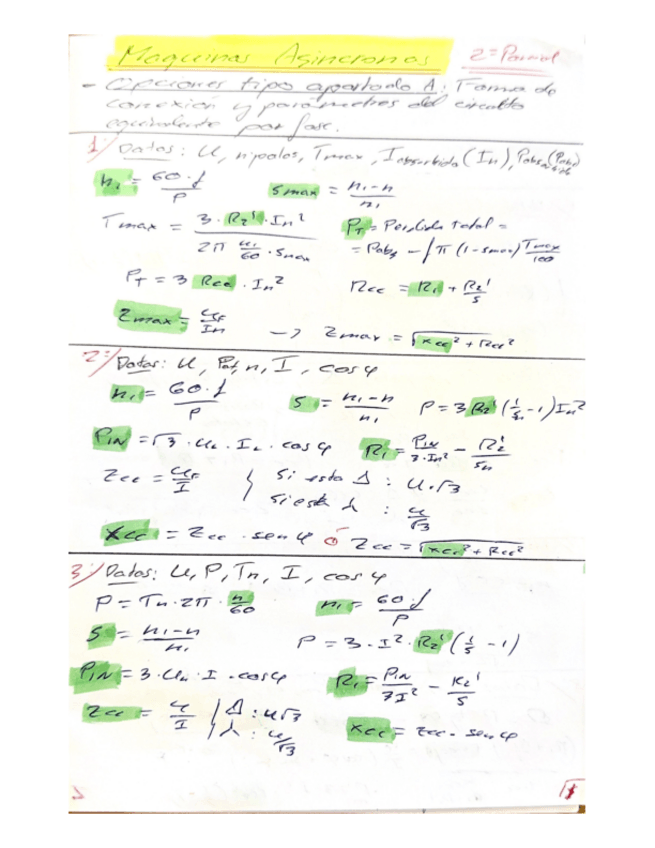 Maquinas Asincronas 2º Parcial
- Opciones tipo apartado A: Forma de
conexión y parámetros del circuito
equivalente por fase.
1/ Datos: U, n polos, Tmax, I absorbida (In), Pabsorbida (Pabs)
n₁ = 60·f / P   Smax = n₁-n / n₁
Tmax = 3·R₂'·In² / 2π n₁/60 · Smax   PT = Perdida total =
= Pabs - ∫π (1-smax) Tmax/100
PT = 3 Rcc · In²   Rcc = R₁ + R₂'/S
Zmax = UF/In → Zmax = √Xcc² + Rcc²
2/ Datos: U, Pot, n, I, cos φ
n₁ = 60·f / P   S = n₁-n / n₁   P = 3 R₂' (1/Sn -1) In²
PIN = √3 · UL · IL · cos φ   R₁ = PIN / 3·In² - R₂'/Sn
Zcc = UF/I   Si esta Δ : U·√3
Si esta ⅄ : U/√3
Xcc = Zcc · sen φ ó Zcc = √Xcc² + Rcc²
3/ Datos: U, P, Tn, I, cos φ
P = Tn·2π · n/60   n₁ = 60·f / P
S = n₁-n / n₁   P = 3·I²·R₂' (1/S - 1)
PIN = 3·Un · I · cos φ   R₁ = PIN / 3I² - R₂'/S
Zcc = U/I   Δ : U√3
⅄ : U/√3   Xcc = Zcc · sen φ